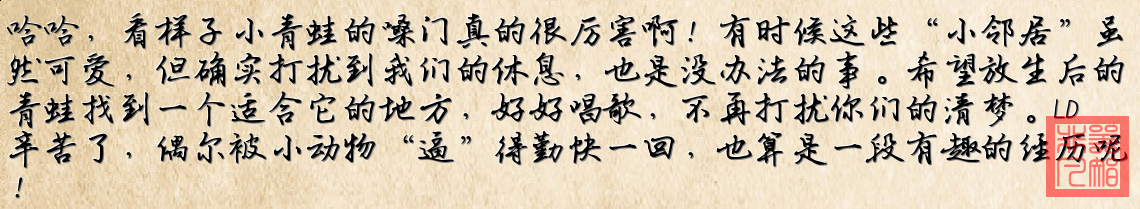 哈哈，看样子小青蛙的嗓门真的很厉害啊！有时候这些“小邻居”虽
然可爱，但确实打扰到我们的休息，也是没办法的事。希望放生后的
青蛙找到一个适合它的地方，好好唱歌，不再打扰你们的清梦。LD
辛苦了，偶尔被小动物“逼”得勤快一回，也算是一段有趣的经历呢
！